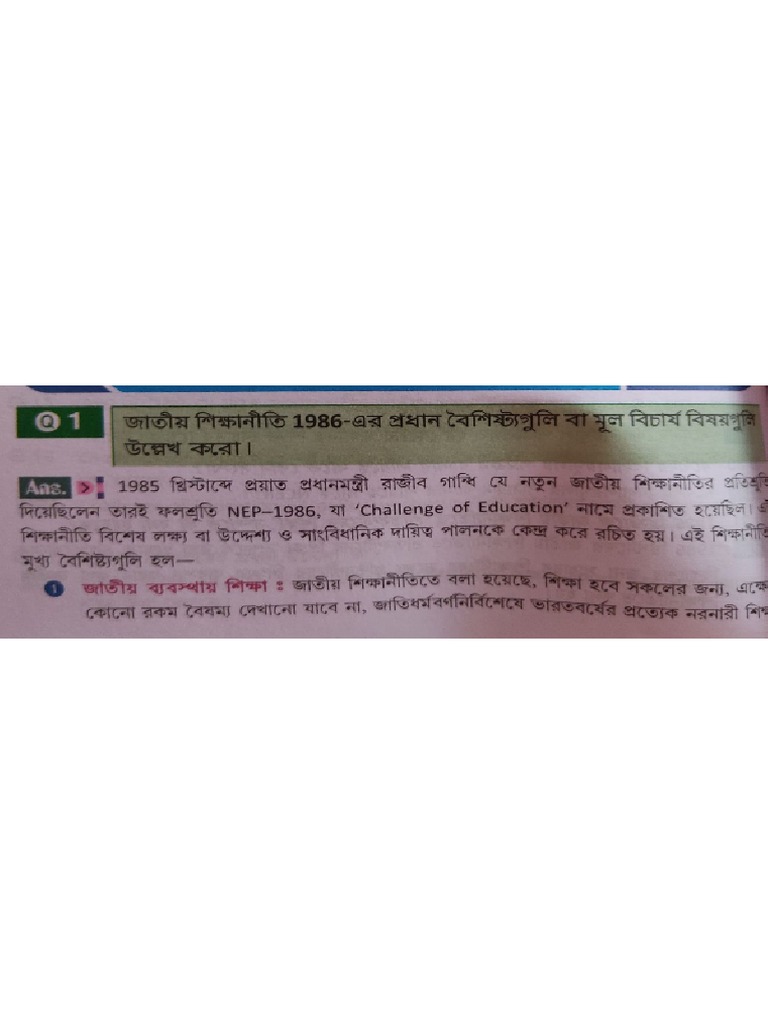 Q 1 জাতীয় শিক্ষানীতি 1986-এর প্রধান বৈশিষ্ট্যগুলি বা মূল বিচার্য বিষয়গুলি
উল্লেখ করো।
Ans. 1985 খ্রিস্টাব্দে প্রয়াত প্রধানমন্ত্রী রাজীব গান্ধি যে নতুন জাতীয় শিক্ষানীতির
দিয়েছিলেন তারই ফলশ্রুতি NEP–1986, যা ‘Challenge of Education’ নামে প্রকাশিত হয়েছিল।
শিক্ষানীতি বিশেষ লক্ষ্য বা উদ্দেশ্য ও সাংবিধানিক দায়িত্ব পালনকে কেন্দ্র করে রচিত হয়। এই
মুখ্য বৈশিষ্ট্যগুলি হল—
1 জাতীয় ব্যবস্থায় শিক্ষা : জাতীয় শিক্ষানীতিতে বলা হয়েছে, শিক্ষা হবে সকলের জন্য,
কোনো রকম বৈষম্য দেখানো যাবে না, জাতিধর্মবর্ণনির্বিশেষে ভারতবর্ষের প্রত্যেক নরনারী